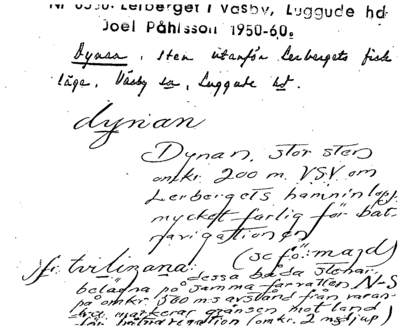 Nr 6550. Lerberget i Väsby, Luggude hd
Joel Påhlsson 1950-60.
Dynan, sten utanför Lerbergets fisk
läge, Väsby sn, Luggude hd.
dynan
Dynan, stor sten
omkr. 200 m. VSV om
Lerbergets hamninlopp
mycket farlig för båt-
navigationen
(se fö: majd)
Jfr tvilingana: dessa båda stenar
belägna på samma farvatten N-S
på omkr. 500 m:s avstånd från varan-
dra markerar gränsen mot land
för båtnavigation (omkr. 2 m djup)